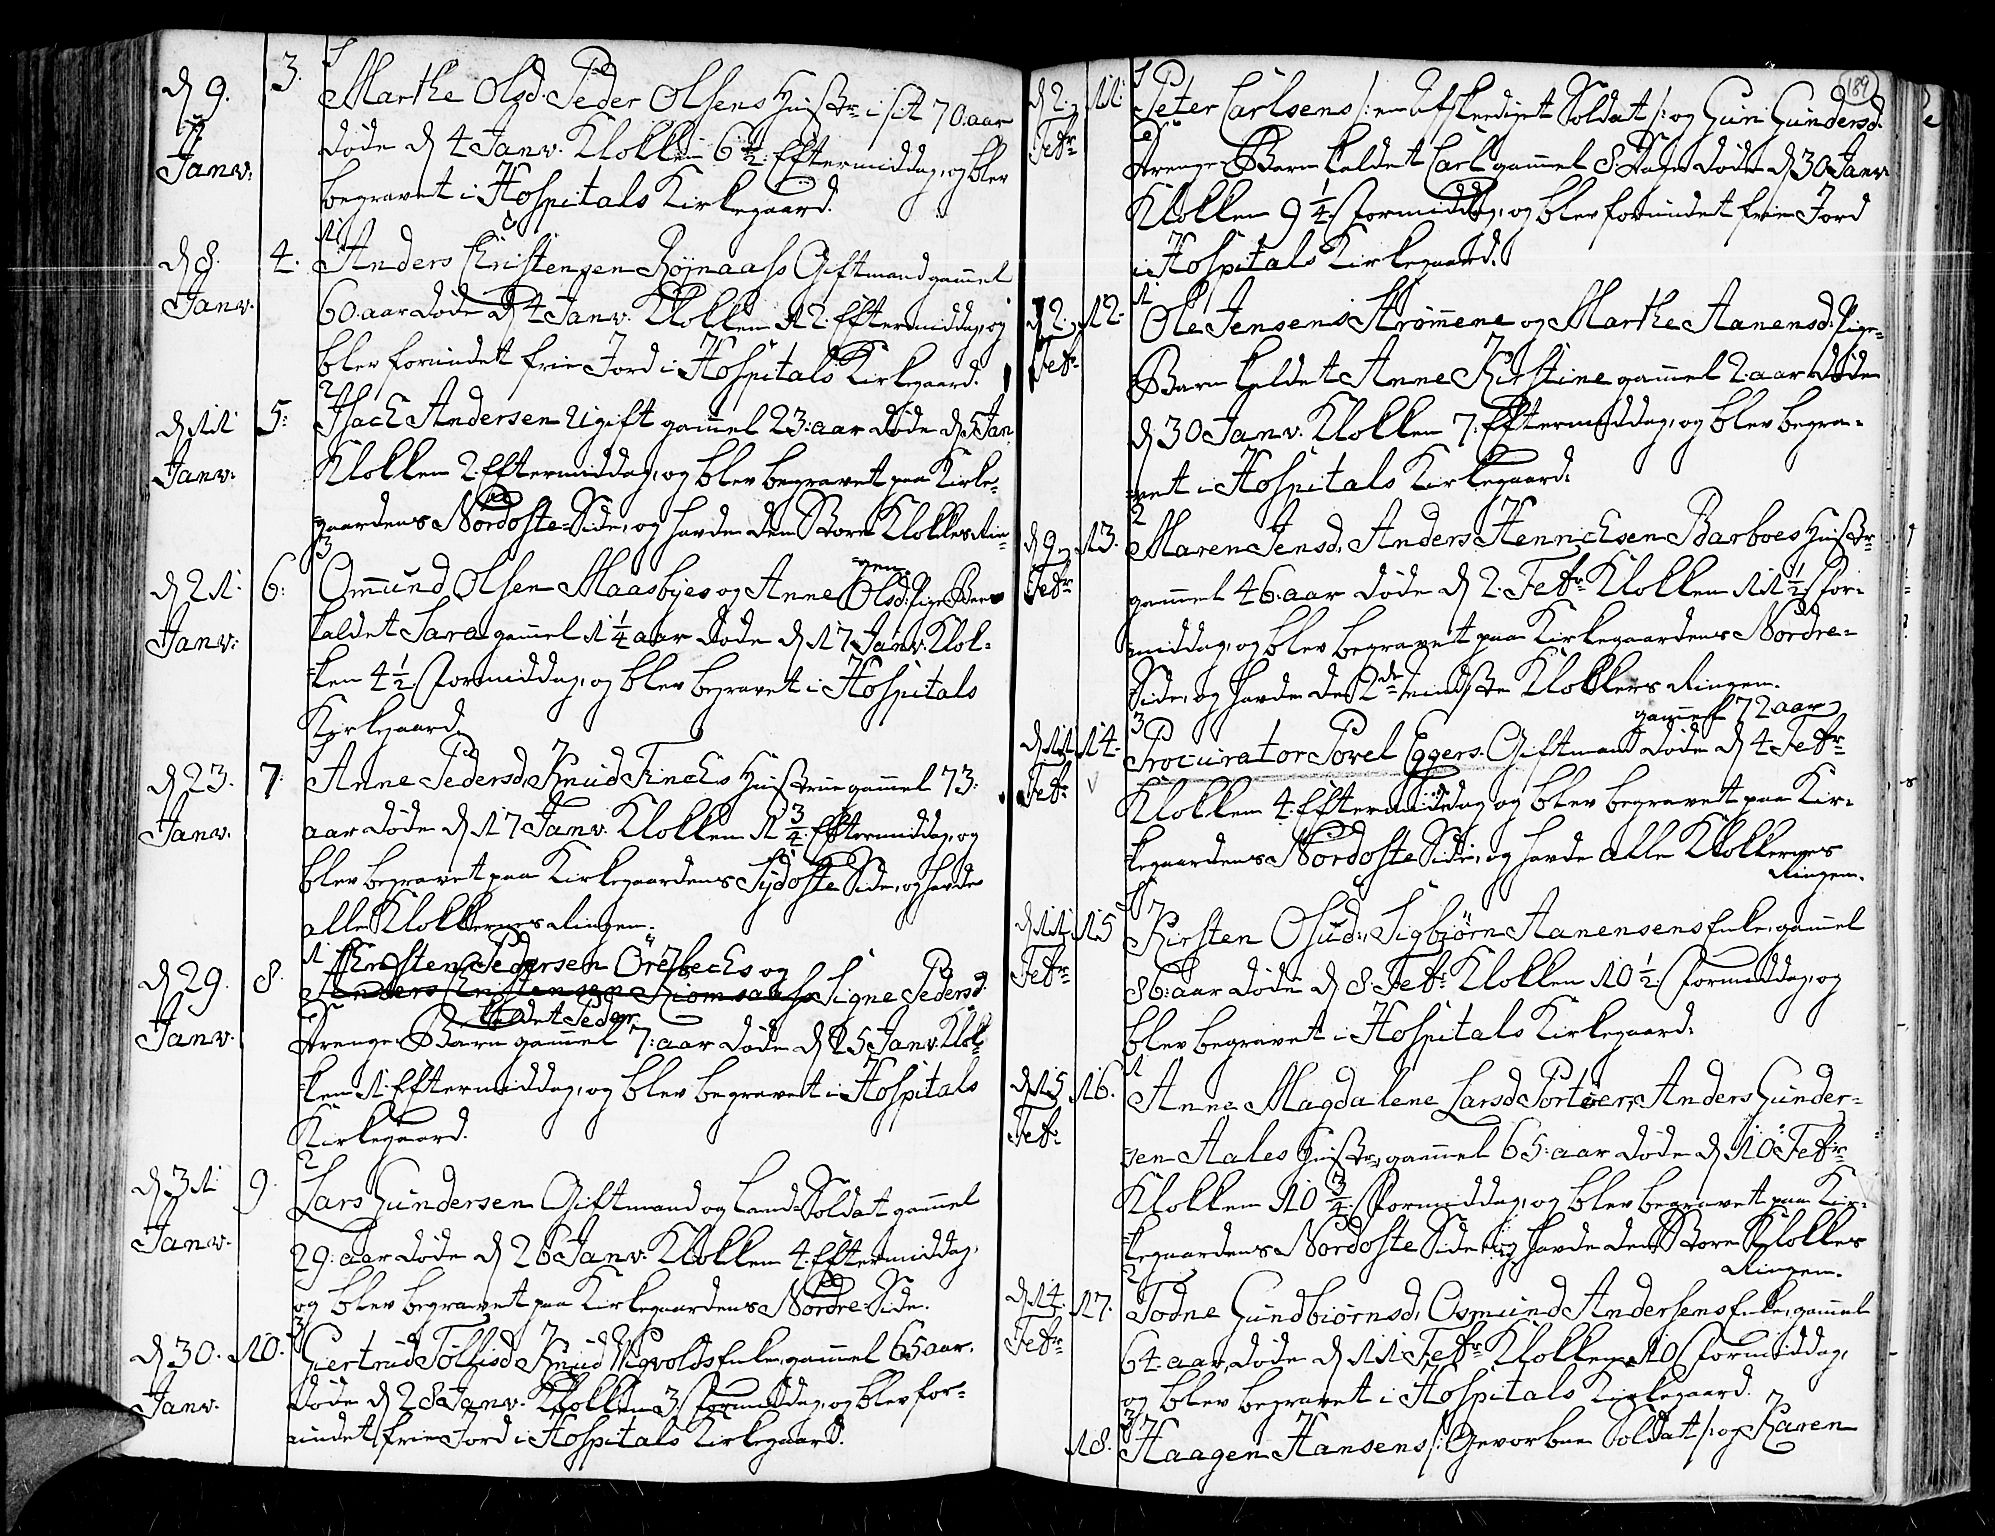 d 9. Janv: 3. Marthe Olsd. Peder Olsens Hustr: i sit 70 aar
døde d 4 Janv. Klokken 6 1/2. Eftermiddag, og blev
begravet i Hospitals Kirkegaard.
d 8. Janv. 4. Anders Christensen Giftmand gam̄el
60. aar døde d 4 Janv. Klokken 12. Eftermiddag, og
blev forundet frie Jord i Hospitals Kirkegaard.
d 11 Janv. 5: Isach Andersen Ugift gam̄el 23: aar døde d 5 Jan
Klokken 2. Eftermiddag, og blev begravet paa Kirke-
gaardens Nordoste Side, og havde den Store Klokkes Rin-
gen.
d 21. Janv: 6: Om̄und Olsen Maasbyes og Anne Olsd: Pige Barn
kaldet Sara gam̄el 1 1/4 aar døde d 17 Janv. Klok-
ken 4 1/2. Formiddag, og blev begravet i Hospitals
Kirkegaard.
d 23. Janv. 7. Anne Pedersd. Knud Finchs Hustrue gam̄el 73.
aar døde d 17 Janv. Klokken 1 3/4. Eftermiddag, og
blev begravet paa Kirkegaardens Sydoste Side, og havde
alle Klokkernes Ringen.
d 29. Janv. 8. Christen Pedersen Örebechs og
Anders Christensen Signe Pedersd.
kaldet Peder
Drenge Barn gam̄el 7: aar døde d 25 Janv. Klok-
ken 1. Eftermiddag, og blev begravet i Hospitals
Kirkegaard.
d 31 Janv. 9. Lars Gundersen Giftmand og Land-Soldat gam̄el
29: aar døde d 26 Janv. Klokken 4. Eftermiddag,
og blev begravet paa Kirkegaardens Nordre Side.
d 30. Janv. 10. Giertrud Tollisd. Knud Wigvolds Enke, gam̄el 65 aar.
døde d 28 Janv. Klokken 3. Formiddag, og blev for-
undet frie Jord i Hospitals Kirkegaard.
189
d 2. Febr: 11. Peter Carlsens /: en afskediget Soldat :/ og Guri Gundersd.
Drenge Barn kaldet Carl gam̄el 8. Dage døde d 30 Janv.
Klokken 9 1/4. Formiddag, og blev forundet frie Jord
i Hospitals Kirkegaard.
d 2. Febr. 12. Ole Jensens Strøm̄ene og Marthe Aanensd: Pige-
Barn kaldet Anne Kirstine gam̄el 2. aar døde
d 30 Janv. Klokken 7. Eftermiddag, og blev begra-
vet i Hospitals Kirkegaard.
d 9. Febr: 13. Maren Jensd. Anders Henrichsen Barboes Hustr:
gam̄el 46. aar døde d 2. Febr: Klokken 11 1/2. For-
middag, og blev begravet paa Kirkegaardens Nordre-
Side, og havde de 2de mindste Klokkers Ringen.
gam̄el 72 aar,
d 11 Febr: 14. Procurator Povel Eggers. Giftmand døde d 4 Febr:
Klokken 4. Eftermiddag og blev begravet paa Kir-
kegaardens Nordoste Side, og havde alle Klokkernes
Ringen.
d 11. Febr: 15 Kirsten Osud., Sigbjørn Aanensens Enke, gam̄el
86: aar døde d 8. Febr: Klokken 10 1/2. Formiddag, og
blev begravet i Hospitals Kirkegaard.
d 15 Febr: 16. Anne Magdalene Larsd Anders Gunder-
sen Aales Hustr., gam̄el 65: aar døde d 10 Febr:
Klokken 10 3/4. Formiddag, og blev begravet paa Kir-
kegaardens Nordoste Side og havde den Store Klokkes
Ringen.
d 14. Febr: 17. Todne Gundbiørnsd. Osmund Andersens Enke, gam̄el
64. aar, døde d 11 Febr: Klokken 10. Formiddag,
og blev begravet i Hospitals Kirkegaard.
18. Haagen Hansens /: Gevorben Soldat :/ og Karen